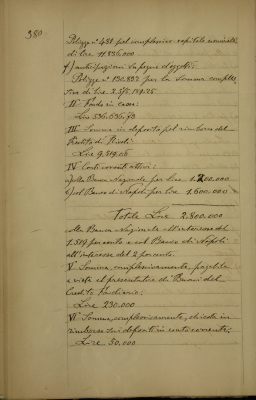 380
Polizze n° 481 pel complessivo capitale nominale
di lire 11.826.000
f) anticipazioni su pegno d'oggetti:
Polizze n° 130.832 per la somma comples
siva di lire 2.575.189.25
II Fondo in cassa:
Lire 536.636.70
III Somma in deposito pel rimborso del
Prestito di
Lire 9.519.06
IV Conti correnti attivi:
a) colla Banca Nazionale per lire 1.200.000
b) col Banco di Napoli per lire 1.600.000
Totale Lire 2.800.000
Alla Banca Nazionale all'interesse del
1.519 per cento e col Banco di Napoli
all'interesse del 2 per cento.
V Somma complessivamente pagabile
a vista al presentatore di Buoni del
Credito Fondiario:
Lire 230.000
VI Somma, complessivamente, chiesta in
rimborso sui depositi in conto corrente;
Lire 50.000